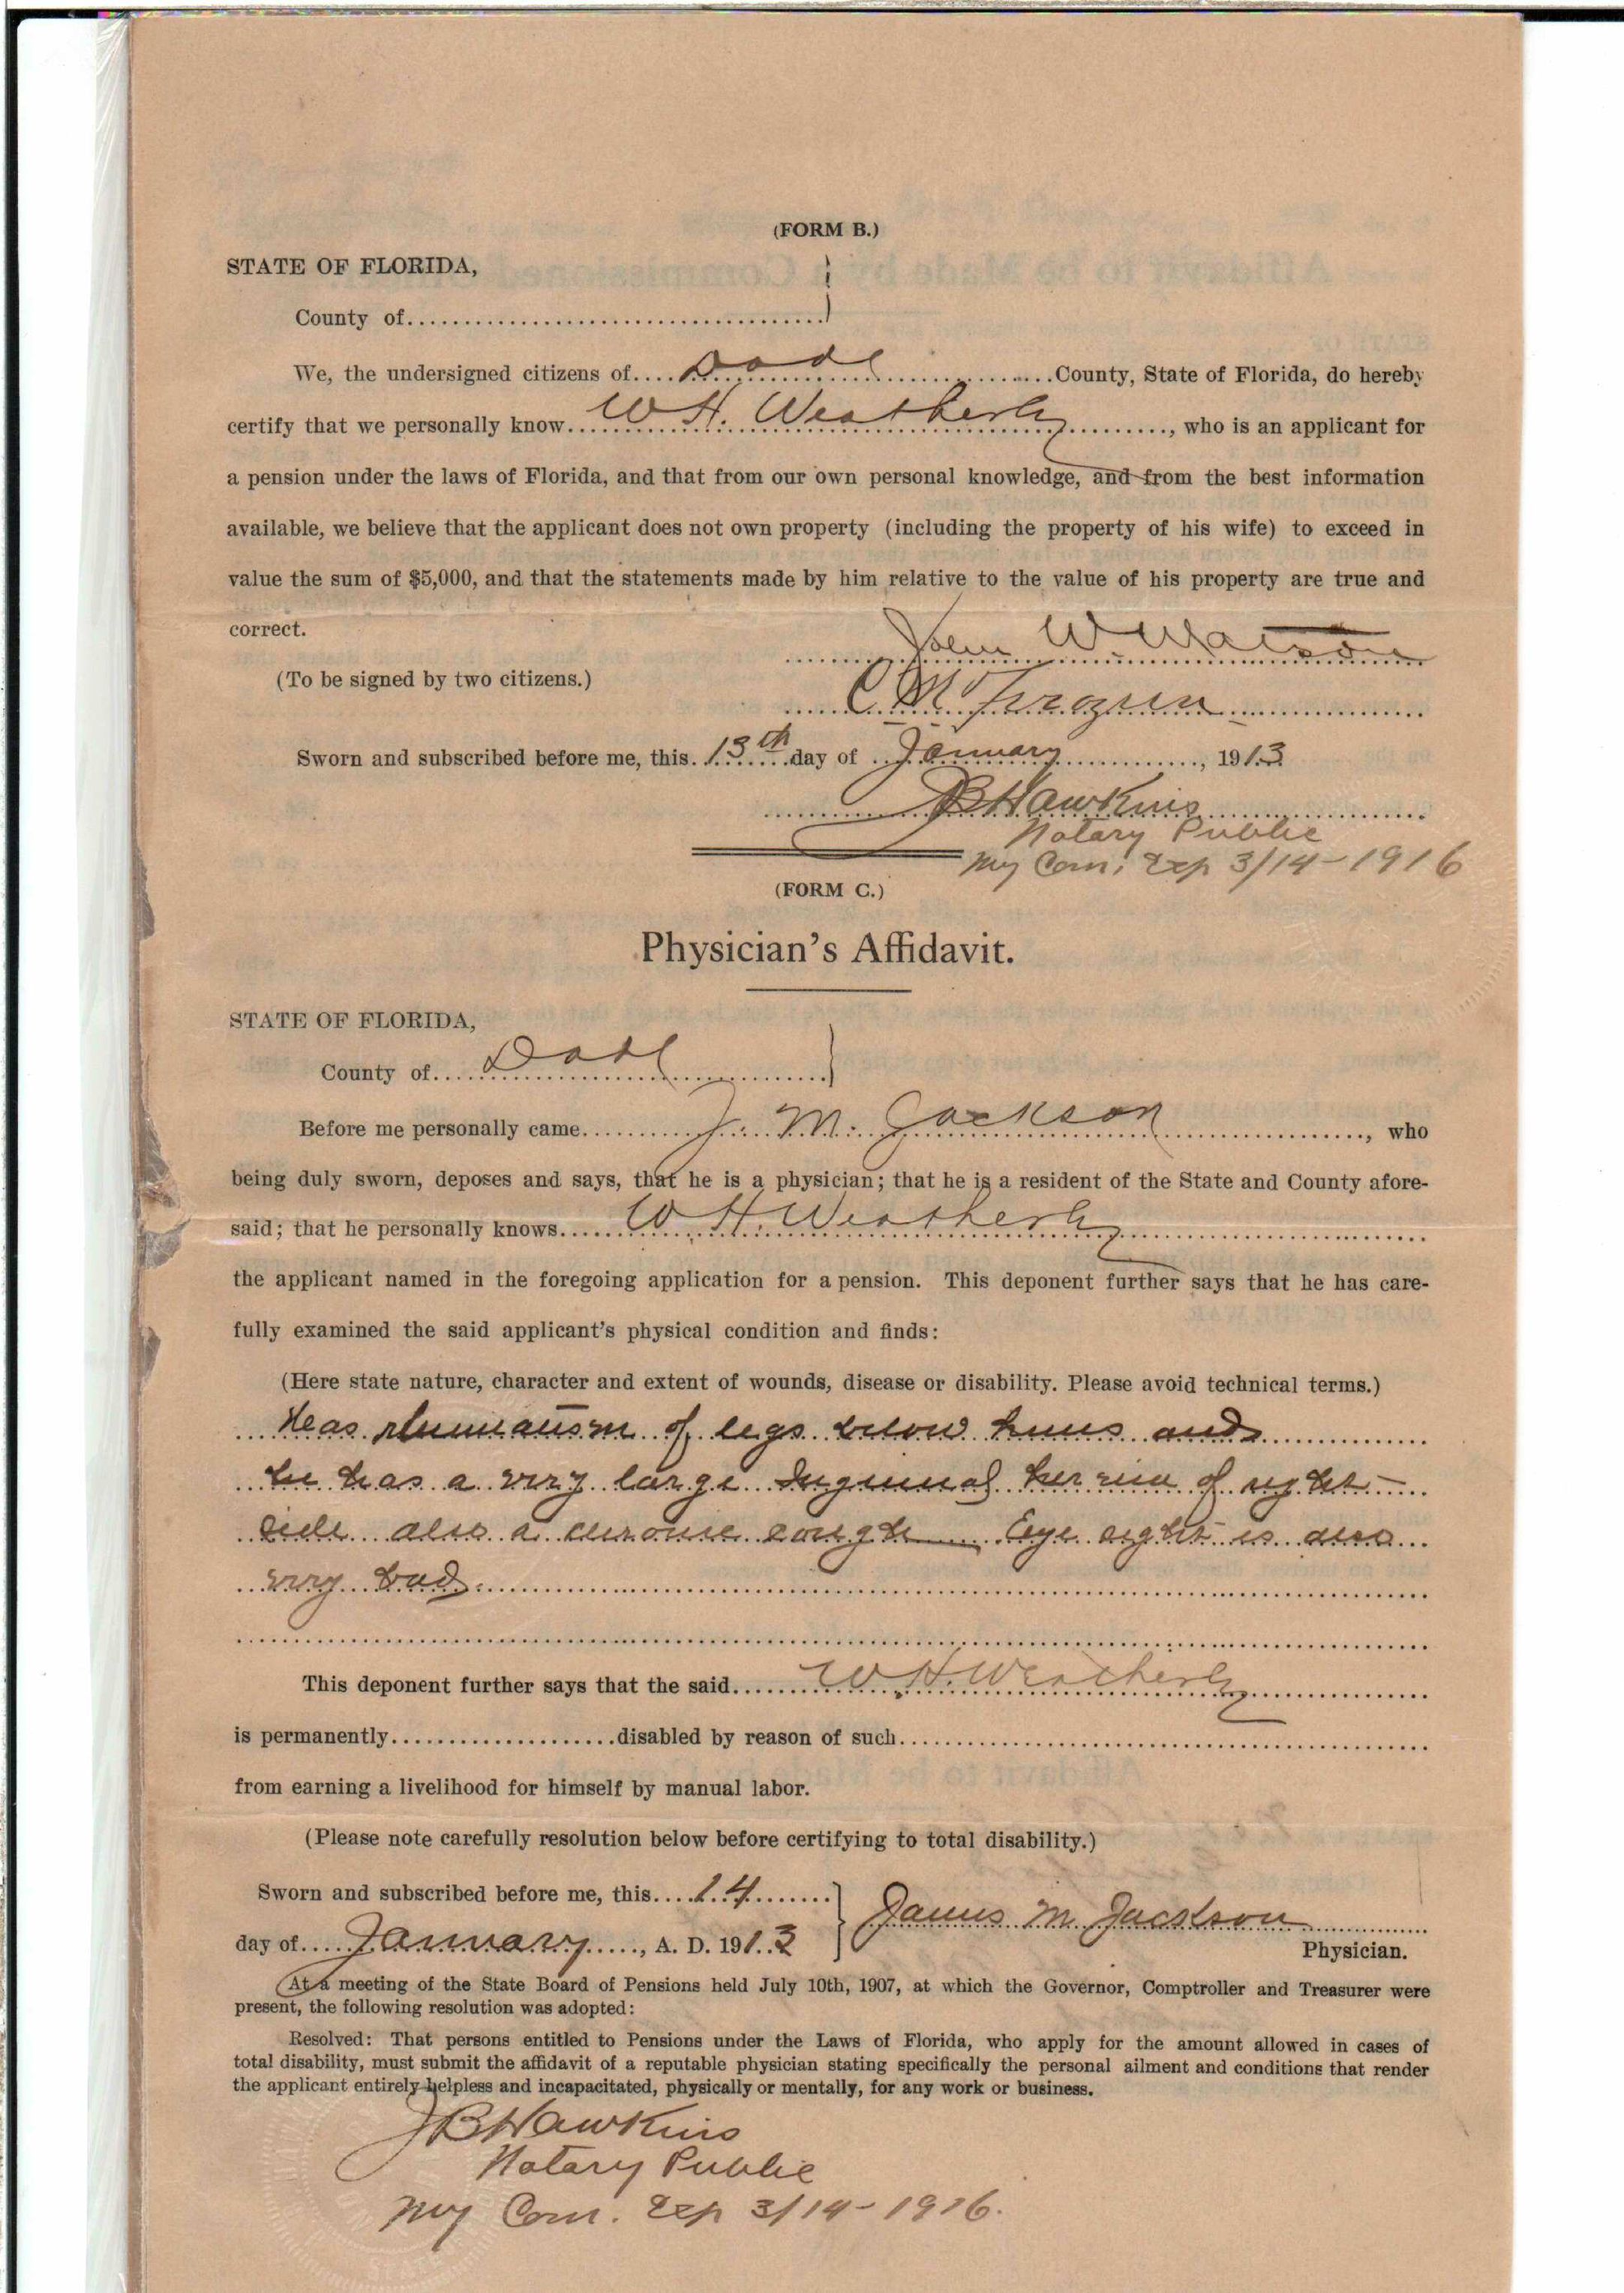 (FORM B.)
STATE OF FLORIDA,
County of
We, the undersigned citizens of Dade County, State of Florida, do hereby
certify that we personally know W. H. Weatherly, who is an applicant for
a pension under the laws of Florida, and that from our own personal knowledge, and from the best information
available, we believe that the applicant does not own property (including the property of his wife) to exceed in
value the sum of $5,000, and that the statements made by him relative to the value of his property are true and
correct.
John W. Watson
(To be signed by two citizens.)
C M
Sworn and subscribed before me, this 13th day of January, 1913
JB Hawkins
Notary Public
My Com. Exp 3/14-1916
(FORM C.)
Physician's Affidavit.
STATE OF FLORIDA,
County of Dade
Before me personally came J. M. Jackson, who
being duly sworn, deposes and says, that he is a physician; that he is a resident of the State and County afore-
said; that he personally knows W. H. Weatherly
the applicant named in the foregoing application for a pension. This deponent further says that he has care-
fully examined the said applicant's physical condition and finds:
(Here state nature, character and extent of wounds, disease or disability. Please avoid technical terms.)
Has rheumatism of legs below knees and
he has a very large Inguinal hernia of right
side also a chronic cough Eye sight is also
very bad.
This deponent further says that the said W. H. Weatherly
is permanently disabled by reason of such
from earning a livelihood for himself by manual labor.
(Please note carefully resolution below before certifying to total disability.)
Sworn and subscribed before me, this 14
James M. Jackson
day of January, A. D. 1913
Physician.
At a meeting of the State Board of Pensions held July 10th, 1907, at which the Governor, Comptroller and Treasurer were
present, the following resolution was adopted:
Resolved: That persons entitled to Pensions under the Laws of Florida, who apply for the amount allowed in cases of
total disability, must submit the affidavit of a reputable physician stating specifically the personal ailment and conditions that render
the applicant entirely helpless and incapacitated, physically or mentally, for any work or business.
JB Hawkins
Notary Public
My Com. Exp 3/14-1916.